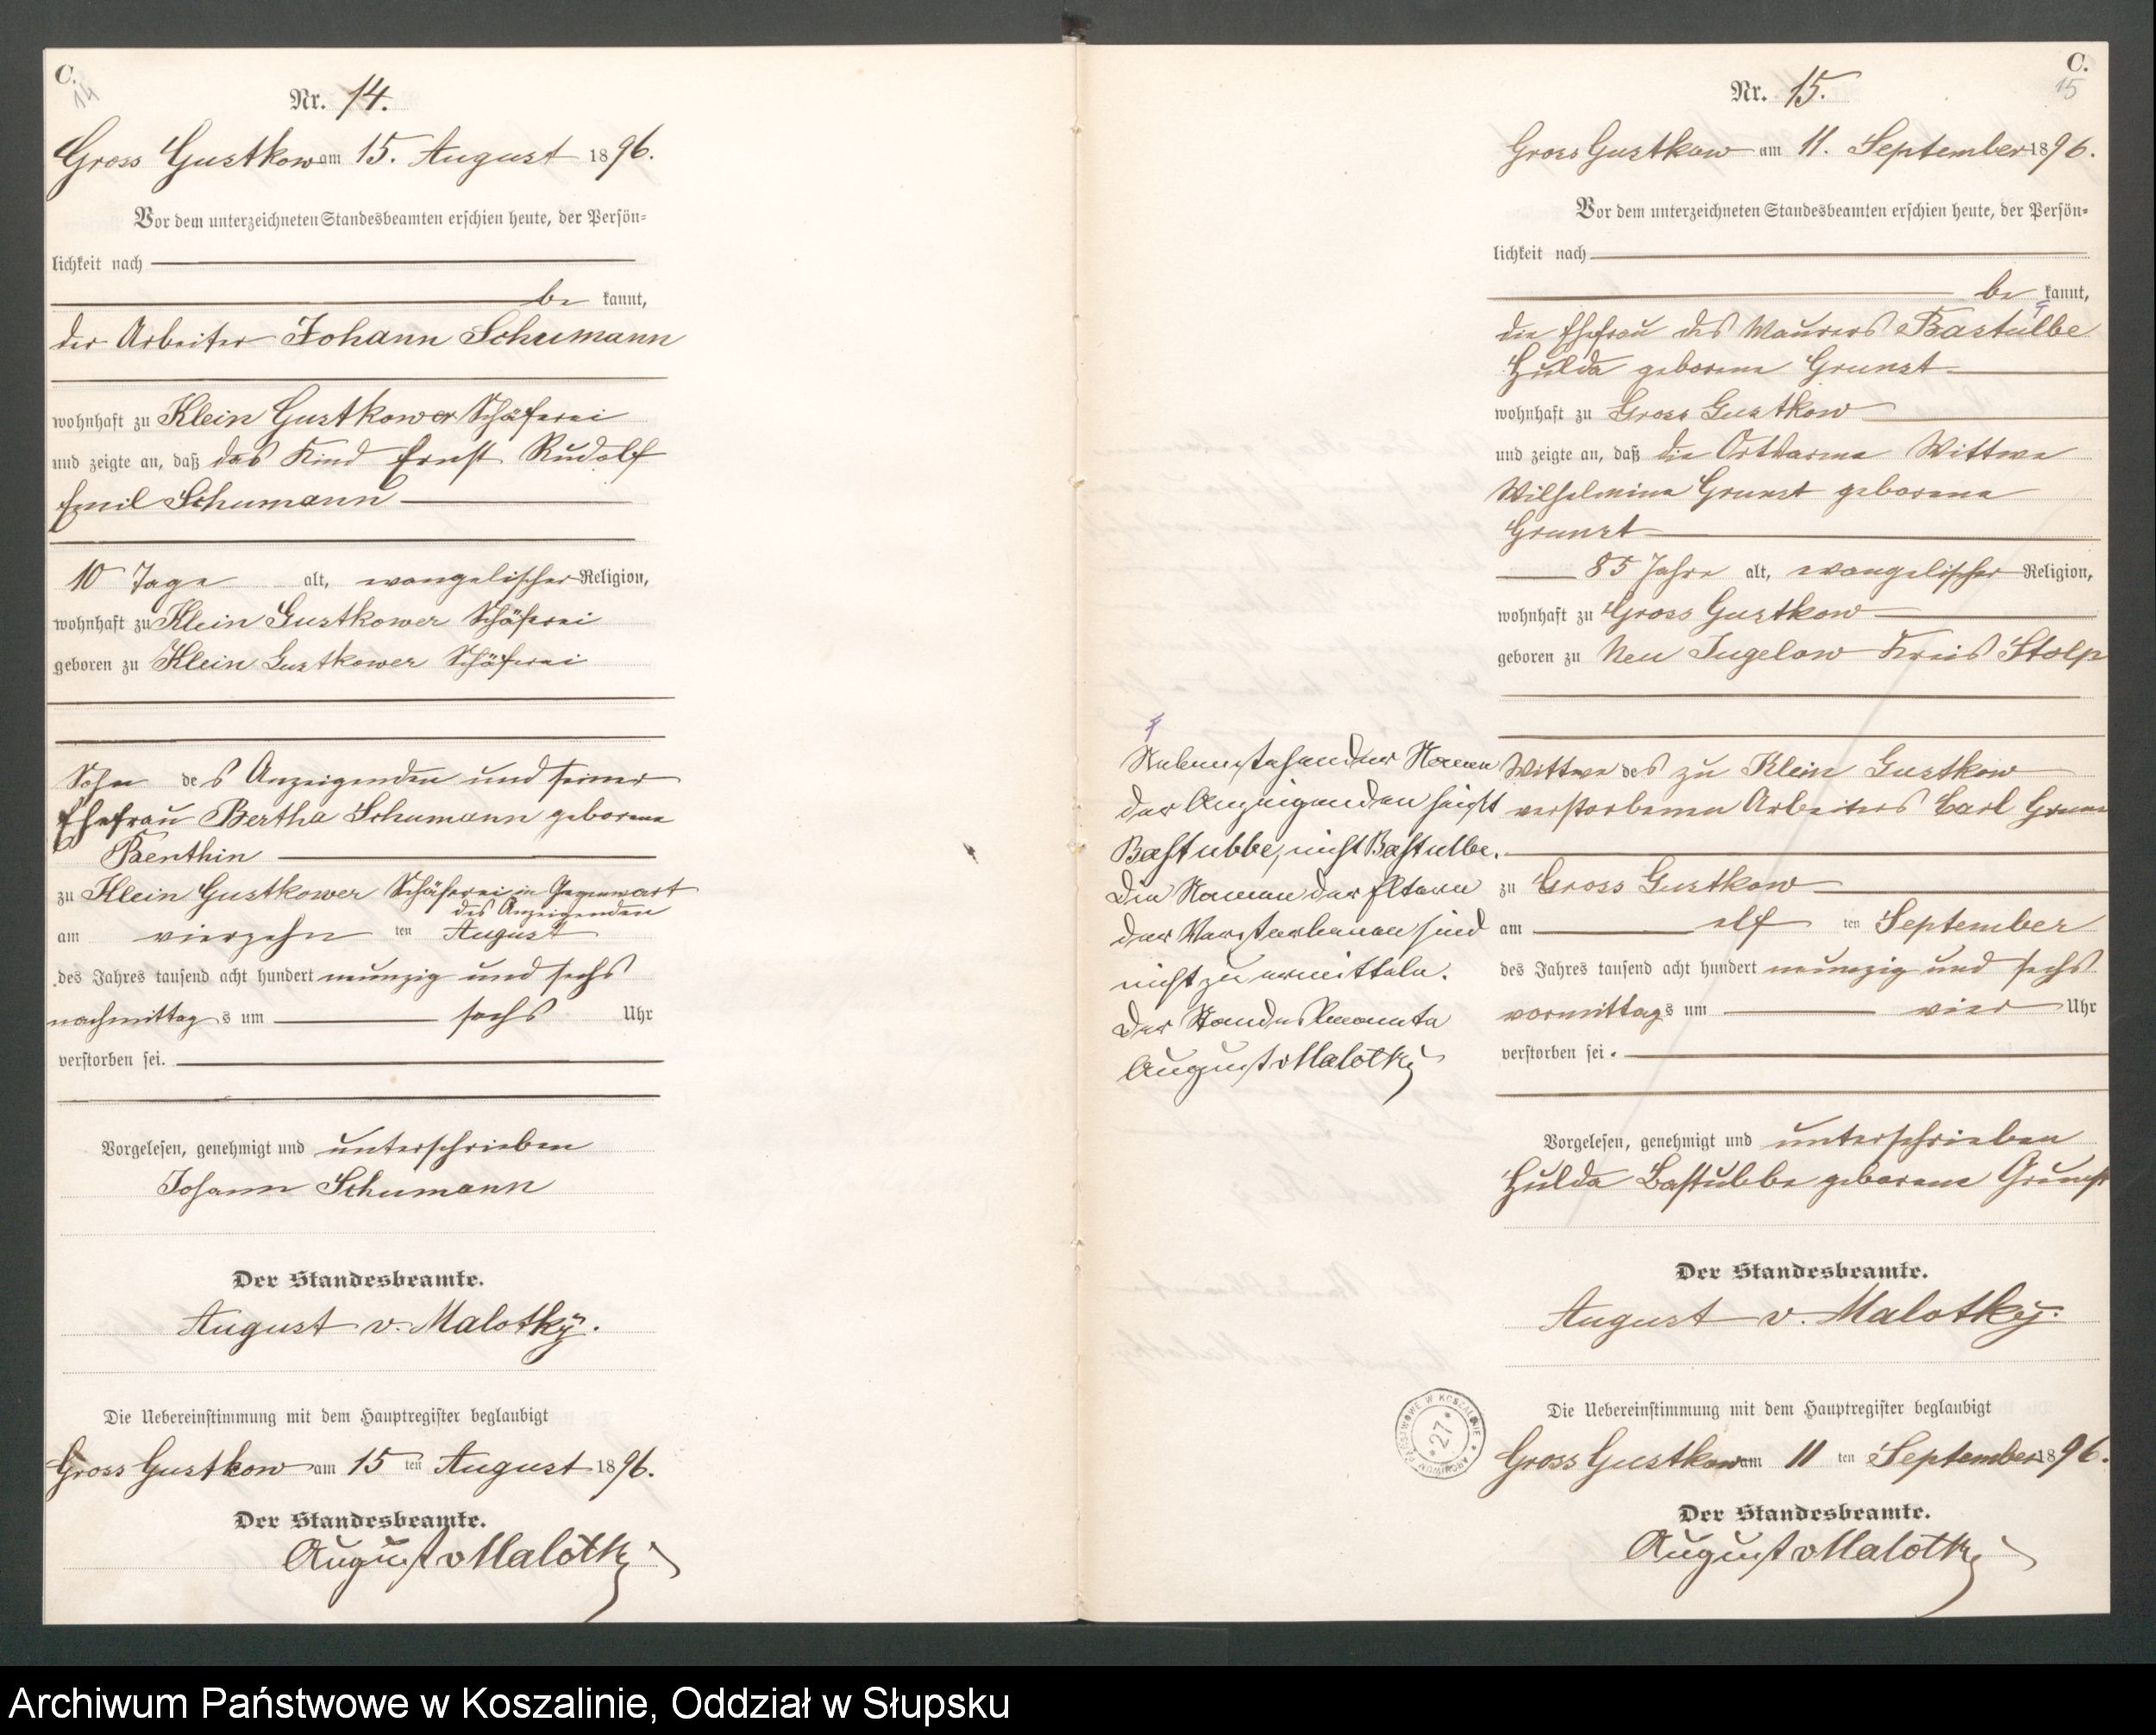 C.
14
Nr. 14.
Gross Gustkow am 15. August 1896.
Vor dem unterzeichneten Standesbeamten erschien heute, der Persön-
lichkeit nach
be kannt,
der Arbeiter Johann Schumann
wohnhaft zu Klein Gustkower Schäferei
und zeigte an, daß das Kind Ernst Rudolf
Emil Schumann
10 Tage alt, evangelischer Religion,
wohnhaft zu Klein Gustkower Schäferei
geboren zu Klein Gustkower Schäferei
Sohn des Anzeigenden und seiner
Ehefrau Bertha Schumann geborene
Benthin
zu Klein Gustkower Schäferei in Gegenwart
des Anzeigenden
am vierzehn ten August
des Jahres tausend acht hundert neunzig und sechs
nachmittag s um sechs Uhr
verstorben sei.
Vorgelesen, genehmigt und unterschrieben
Johann Schumann
Der Standesbeamte.
August v. Malotky.
Die Uebereinstimmung mit dem Hauptregister beglaubigt
Gross Gustkow am 15 ten August 1896.
Der Standesbeamte.
August v Malotky
C.
15
Nr. 15.
Gross Gustkow am 11. September 1896.
Vor dem unterzeichneten Standesbeamten erschien heute, der Persön-
lichkeit nach
be kannt,
die Ehefrau des Maurers Bastulbe
Hulda geborene Grunst
wohnhaft zu Gross Gustkow
und zeigte an, daß die Ortsarme Wittwe
Wilhelmine Grunst geborene
Grunst
85 Jahre alt, evangelischer Religion,
wohnhaft zu Gross Gustkow
geboren zu Neu Jugelow Kreis Stolp
Wittwe des zu Klein Gustkow
verstorbenen Arbeiters Carl
zu Gross Gustkow
am elf ten September
des Jahres tausend acht hundert neunzig und sechs
vormittags um vier Uhr
verstorben sei.
Nebenstehender Namen
der Anzeigenden heißt
Bastubbe, nicht Bastulbe.
Die Namen der Eltern
der Verstorbenen sind
nicht zu ermitteln.
Der Standesbeamte
August v Malotky
Vorgelesen, genehmigt und unterschrieben
Hulda Bastubbe geborene Grunst
Der Standesbeamte.
August v. Malotky.
Die Uebereinstimmung mit dem Hauptregister beglaubigt
Gross Gustkow am 11 ten September 1896.
Der Standesbeamte.
August v Malotky
ARCHIWUM PAŃSTWOWE W KOSZALINIE
27
Archiwum Państwowe w Koszalinie, Oddział w Słupsku